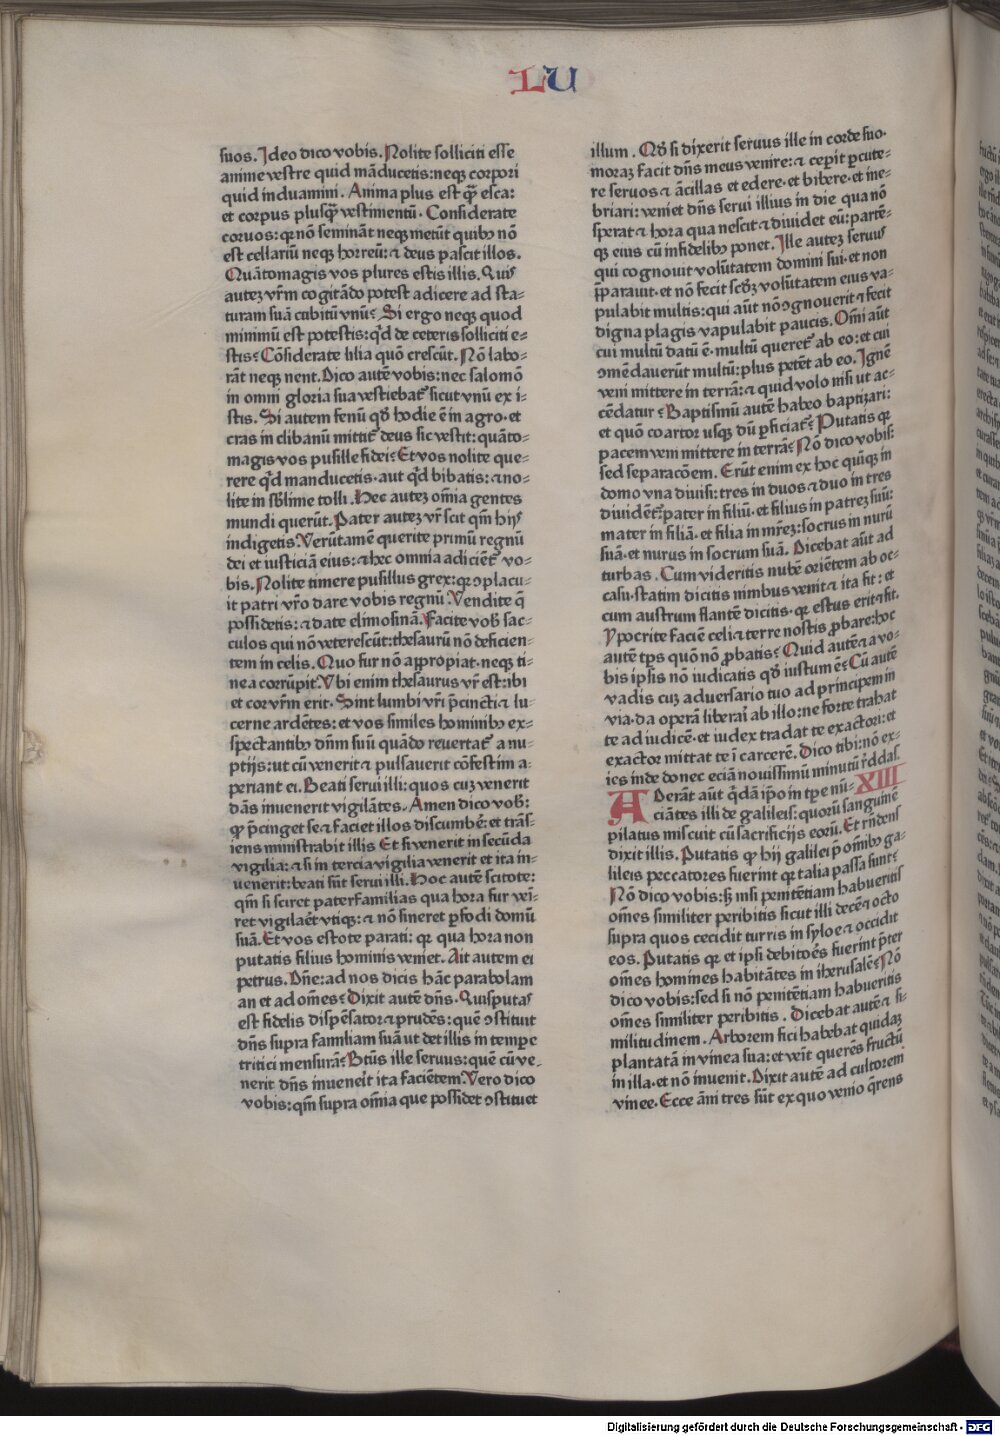 LU
suos. Ideo dico vobis. Nolite solliciti esse
anime vestre quid māducetis: neqꝫ corpori
quid induamini. Anima plus est q̄ꝫ esca:
et corpus plusq̄ꝫ vestimentū. Considerate
corvos: qꝛ nō semināt neqꝫ metūt quibꝰ nō
est cellariū neqꝫ horreū: ⁊ deus pascit illos.
Quātomagis vos plures estis illis. Quis
auteꝫ vr̄m cogitādo potest adicere ad sta⸗
turam suā cubitū vnū? Si ergo neqꝫ quod
minimū est potestis: qͥd de ceteris solliciti e⸗
stis? Cōsiderate lilia quō crescūt. Nō labo⸗
rāt neqꝫ nent. Dico autē vobis: nec salomō
in omni gloria sua vestiebat᷑ sicut vnū ex i⸗
stis. Si autem fenū qd̛ hodie ē in agro· et
cras in clibanū mittit᷑ deus sic vestit: quāto⸗
magis vos pusille fidei? Et vos nolite que⸗
rere qͥd manducetis· aut qͥd bibatis: ⁊ no⸗
lite in sb̛lime tolli. Hec auteꝫ om̄ia gentes
mundi querūt. Pater auteꝫ vr̄ scit qm̄ hijs
indigetis. Verūtamē querite primū regnū
dei et iusticiā eius: ⁊ hec omnia adiciēt᷑ vo⸗
bis. Nolite timere pusillus grex: qꝛ ↄplacu⸗
it patri vr̄o dare vobis regnū. Vendite q̄
possidetis: ⁊ date elimosinā. Facite vob̛ sac⸗
culos qui nō veterescūt: thesaurū nō deficien⸗
tem in celis. Quo fur nō appropiat· neqꝫ ti⸗
nea corrūpit. Vbi enim thesaurus vr̄ est: ibi
et cor vr̄m erit. Sint lumbi vr̄i p̄cincti ⁊ lu⸗
cerne ardētes: et vos similes hominibꝰ ex⸗
spectantibꝰ dn̄m suū quādo reuertat᷑ a nu⸗
ptijs: ut cū venerit ⁊ pulsauerit cōfestim a⸗
periant ei. Beati serui illi: quos cuꝫ venerit
dn̄s inuenerit vigilātes. Amen dico vob̛:
qꝙ p̄cinget se ⁊ faciet illos discumbē̛: et trās⸗
iens ministrabit illis Et si venerit in secūda
vigilia: ⁊ si in tercia vigilia venerit et ita in⸗
uenerit: beati sūt serui illi. Hoc autē scitote:
qm̄ si sciret paterfamilias qua hora fur vei⸗
ret vigilaēt vtiqꝫ: ⁊ nō sineret ꝑfodi domū
suā. Et vos estote parati: qꝛ qua hora non
putatis filius hominis veniet. Ait autem ei
petrus. Dn̄e: ad nos dicis hāc parabolam
an et ad om̄es? Dixit autē dn̄s. Quis putas
est fidelis dispēsator ⁊ prudēs: quē ↄstituit
dn̄s supra familiam suā ut det illis in tempe
tritici mensurā? Btūs ille seruus: quē cū ve⸗
nerit dn̄s inuenei̛t ita faciētem. Vero dico
vobis: qm̄ supra om̄ia que possidet ↄstituet
illum. Qd̛ si dixerit seruus ille in corde suo·
moraꝫ facit dn̄s meus venire: ⁊ ceꝑit ꝑcute⸗
re seruos ⁊ ācillas et edere· et bibere· et ine⸗
briari: veniet dn̄s serui illius in die qua nō
sperat ⁊ hora qua nescit ⁊ diuidet eū: partē⸗
qꝫ eius cū infidelibꝰ ponet. Ille auteꝫ seruus
qui cognouit volūtatem domini sui· et non
p̄parauit· et nō fecit scd̛ꝫ volūtatem eius va⸗
pulabit multis: qui aūt nō ↄgnouerit ⁊ fecit
digna plagis vapulabit paucis. Om̄i aūt
cui multū datū ē· multū queret᷑ ab eo: et cui
ↄmēdauerūt multū: plus petēt ab eo. Ignē
veni mittere in terrā: ⁊ quid volo nisi ut ac⸗
cēdatur? Baptismū autē habeo baptizari:
et quō coartor usqꝫ dū ꝑficiat᷑? Putatis qꝛ
pacem veni mittere in terrā? Nō dico vobis:
sed separacōem. Erūt enim ex hoc quīqꝫ in
domo vna diuisi: tres in duos ⁊ duo in tres
diuidēt᷑: pater in filiū· et filius in patreꝫ suū:
mater in filiā· et filia in mr̄eꝫ: socrus in nurū
suā· et nurus in socrum suā. Dicebat aūt ad
turbas. Cum videritis nubē oriētem ab oc⸗
casu· statim dicitis nimbus venit ⁊ ita fit: et
cum austrum flantē dicitis· qꝛ estus erit ⁊ fit.
Ypocrite faciē celi ⁊ terre nostis ꝓbare: hoc
autē tp̄s quō nō ꝓbatis? Quid autē ⁊ a vo⸗
bis ipsis nō iudicatis qd̛ iustum ē? Cū autē
vadis cuꝫ aduersario tuo ad principem in
via· da operā liberari ab illo: ne forte trahat
te ad iudicē· et iudex tradat te exactori: et
exactor mittat te ī carcerē. Dico tibi: nō ex⸗
ies inde donec eciā nouissimū minutū r̄ddas. XIII
ADerāt aūt qͥdā ip̄o in tꝑe nū⸗
ciātes illi de galileis: quorū sanguinē
pilatus miscuit cū sacrificijs eorū. Et rn̄dens
dixit illis. Putatis qꝙ hij galilei p̄ om̄ibꝰ ga⸗
lileis peccatores fuerint qꝛ talia passa sunt?
Nō dico vobis: sꝫ nisi penitētiam habueritis
om̄es similiter peribitis sicut illi decē ⁊ octo
supra quos cecidit turris in syloe ⁊ occidit
eos. Putatis qꝛ et ipsi debitoēs fuerint p̄ter
om̄es homines habitātes in iherusalē? Nō
dico vobis: sed si nō penitētiam habueritis
om̄es similiter peribitis. Dicebat autē ⁊ si⸗
militudinem. Arborem fici habebat quidaꝫ
plantatā in vinea sua: et veīt querēs fructū
in illa· et nō inuenit. Dixit autē ad cultorem
vinee. Ecce āni tres sūt ex quo venio q̄rens
Digitalisierung gefördert durch die Deutsche Forschungsgemeinschaft - DFG